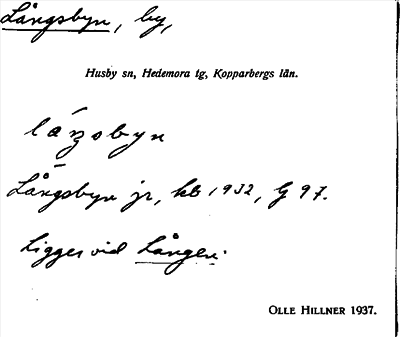 Långsbyn, by,
Husby sn, Hedemora tg, Kopparbergs län.
låŋsbyn
Långsbyn jr, kb 1932, G 97.
Ligger vid Lången.
OLLE HILLNER 1937.